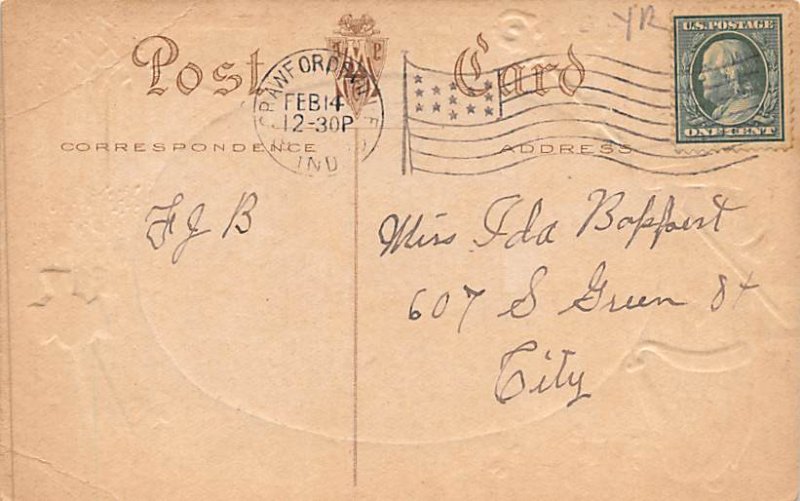 YR
Post Card
U.S. POSTAGE
ONE CENT
CRAWFORDSVILLE
FEB 14
12-30P
IND
CORRESPONDENCE
ADDRESS
F J B
Miss Ida Boppert
607 S Green St
City